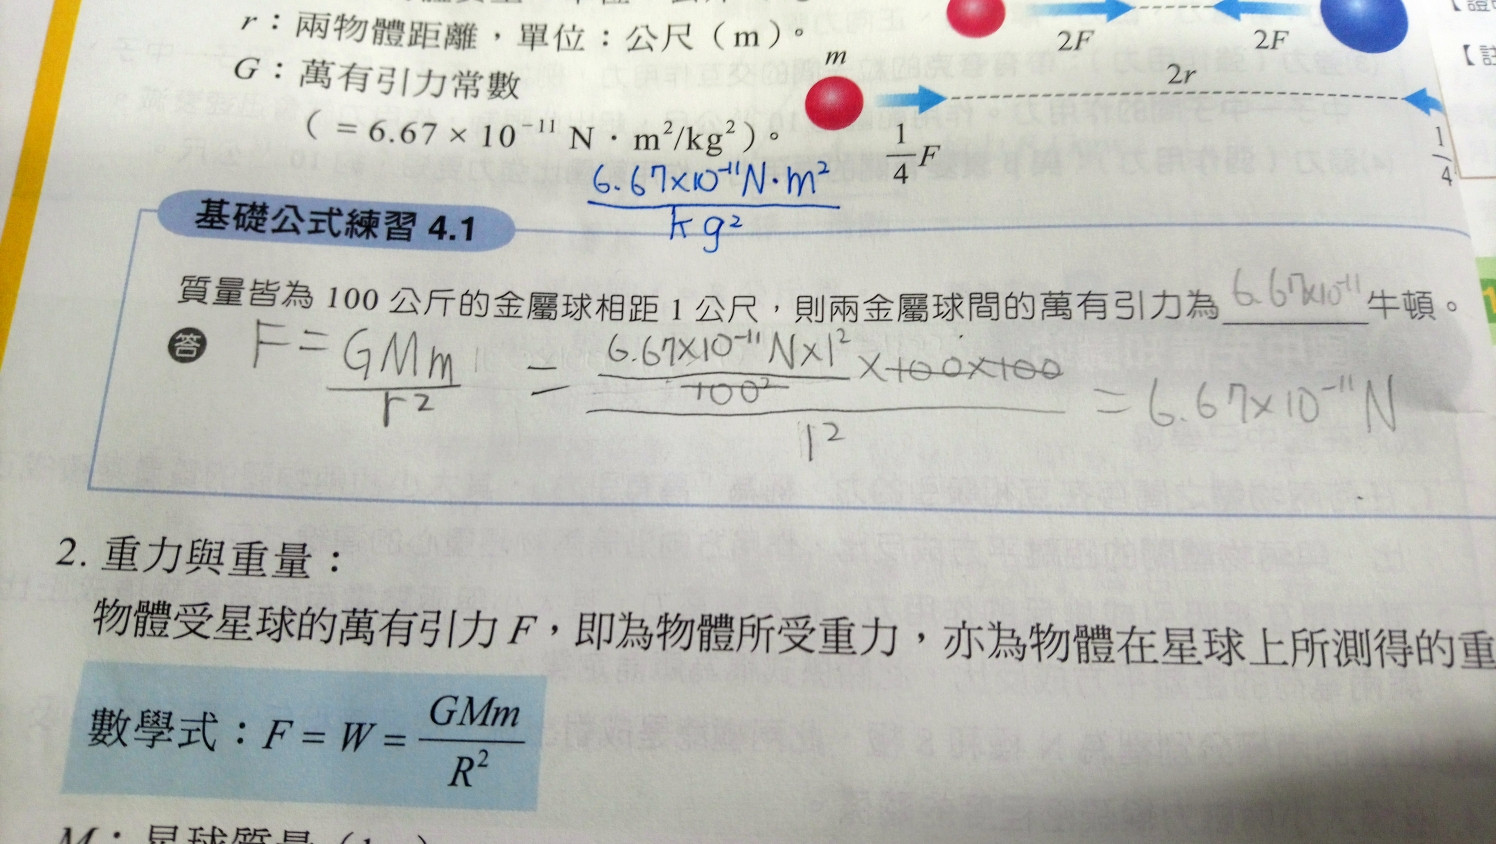 r：兩物體距離，單位：公尺（m）。
G：萬有引力常數
（= 6.67 × 10⁻¹¹ N · m²/kg²）。
2F
2F
m
2r
1/4 F
1/4
6.67×10⁻¹¹N·m²/kg²
基礎公式練習 4.1
質量皆為 100 公斤的金屬球相距 1 公尺，則兩金屬球間的萬有引力為 6.67×10⁻¹¹ 牛頓。
答 F = GMm/r² = (6.67×10⁻¹¹N×1²/100² ×100×100)/1² = 6.67×10⁻¹¹N
2. 重力與重量：
物體受星球的萬有引力 F，即為物體所受重力，亦為物體在星球上所測得的重
數學式：F = W = GMm/R²
M：星球質量